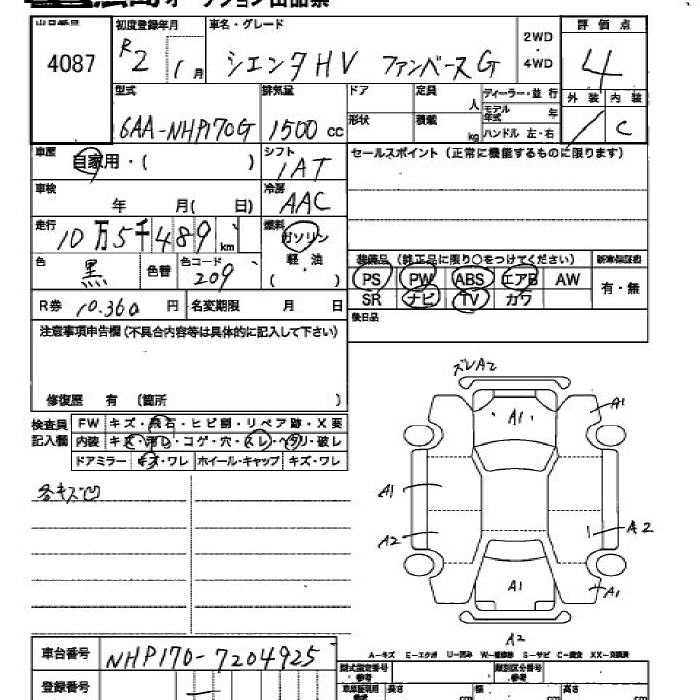 オークション出品票
出品番号 初度登録年月 車名・グレード 2WD・4WD 評価点
4087 R2 1月 シエンタHV ファンベースG 4
型式 排気量 ドア 定員 人 ディーラー・並行 外装 内装
6AA-NHP170G 1500cc 形状 積載 kg モデル年式 年 ハンドル 左・右 / C
車歴 自家用・( ) シフト 1AT セールスポイント(正常に機能するものに限ります)
車検 年 月( 日) 冷房 AAC
走行 10万5千489km 燃料 ガソリン 軽・油 ( )
装備品(純正品に限り○をつけてください) 新車保証書
色 黒 色替 色コード 209
PS PW ABS エアB AW 有・無
SR ナビ TV カワ
R券 10.360円 名変期限 月 日 後日品
注意事項申告欄(不具合内容等は具体的に記入して下さい)
修復歴 有 (箇所 )
検査員記入欄 FW キズ・飛石・ヒビ割・リペア跡・X要
内装 キズ・汚レ・コゲ・穴・スレ・ヘタリ・破レ
ドアミラー キズ・ワレ ホイール・キャップ キズ・ワレ
冬キズ凹
ズレA2
A1 A1
A1
A2 A2
A1 A1
A2
A-キズ E-エクボ U-凹み W-補修跡 S-サビ C-腐食 XX-交換済
車台番号 NHP170-7204925
型式指定番号 類別区分番号
登録番号
車庫証明用参考 長さ cm 幅 cm 高さ cm